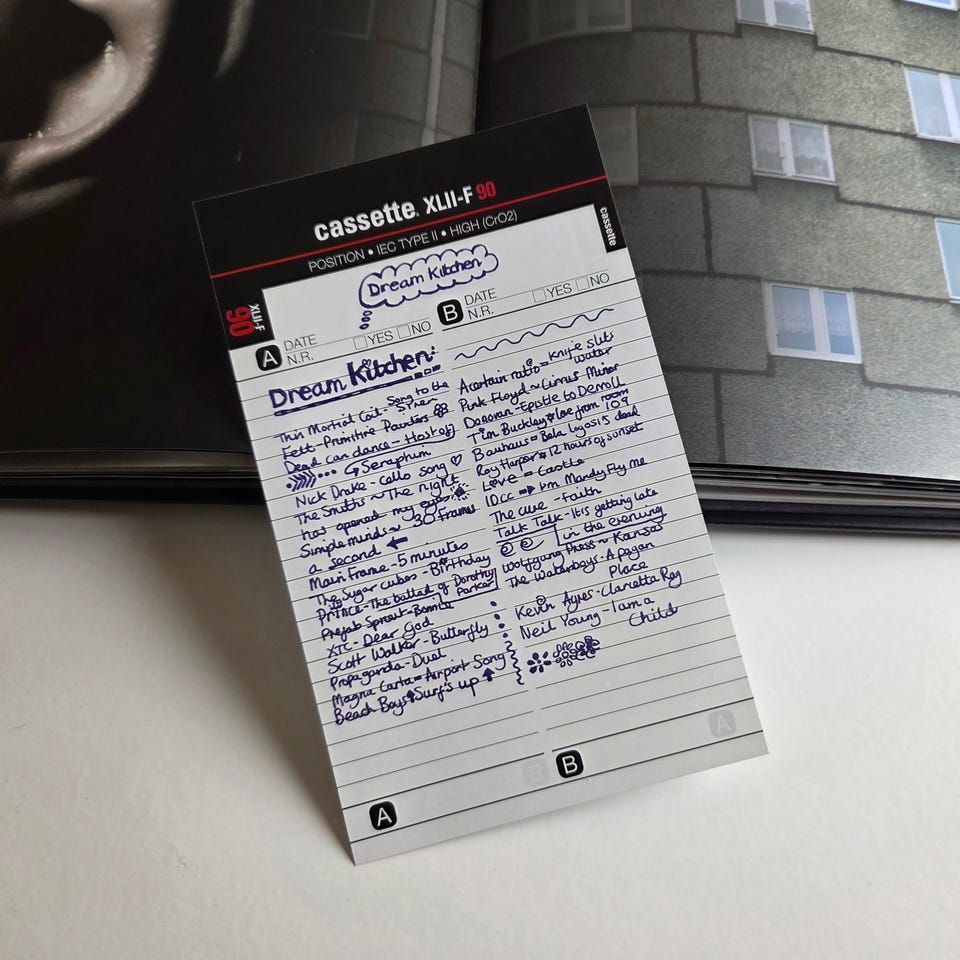 cassette XLII-F 90
POSITION • IEC TYPE II • HIGH (CrO2)
cassette
Dream Kitchen
XLII-F
90
A DATE
N.R. YES NO
B DATE
N.R. YES NO
Dream Kitchen:
This Mortal Coil - Song to the
Siren
Felt - Primitive Painters
Dead can dance - Host of
Seraphim
Nick Drake - cello song
The Smiths ~ The night
has opened my eyes
Simple minds ~ 30 Frames
a second
Main Frame - 5 minutes
The Sugar cubes - Birthday
Prince - The ballad of Dorothy
Parker
Prefab Sprout - Bonnie
XTC - Dear God
Scott Walker - Butterfly
Propaganda - Duel
Magna Carta = Airport Song
Beach Boys Surf's up
A certain ratio = Knife slits
water
Pink Floyd ~ Cirrus Minor
Donovan - Epistle to Derroll
Tim Buckley Love from room
109
Bauhaus = Bela lugosi's dead
Roy Harper 12 hours of sunset
Love = Castle
10cc I'm Mandy Fly me
The cure - Faith
Talk Talk - It's getting late
in the evening
Wolfgang Press ~ Kansas
The Waterboys - A pagan
Place
Kevin Ayres - Clarietta Ray
Neil Young - I am a
Child
A
B
B
A